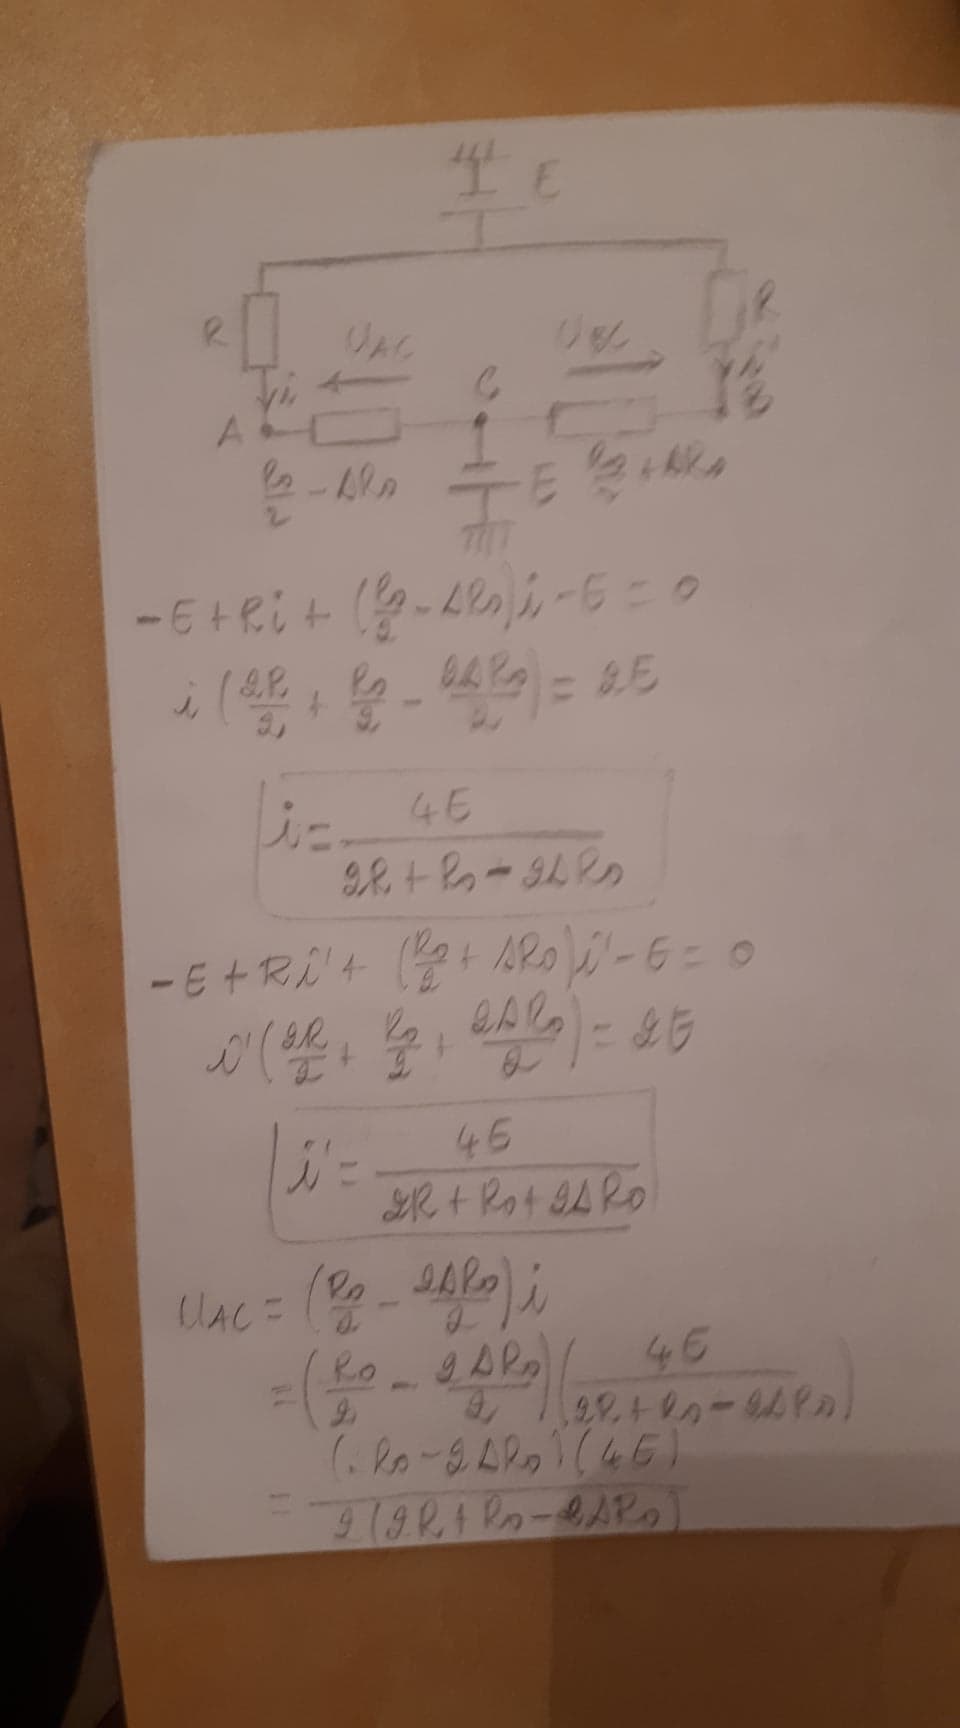 E
R
R
U_AC
U_BC
i
C
i'
A
B
R₀/2 - ΔR₀
E
R₀/2 + ΔR₀
-E + Ri + (R₀/2 - ΔR₀)i - E = 0
i(2R/2 + R₀/2 - 2ΔR₀/2) = 2E
i = 4E/(2R + R₀ - 2ΔR₀)
-E + Ri' + (R₀/2 + ΔR₀)i' - E = 0
i'(2R/2 + R₀/2 + 2ΔR₀/2) = 2E
i' = 4E/(2R + R₀ + 2ΔR₀)
U_AC = (R₀/2 - 2ΔR₀/2)i
= (R₀/2 - 2ΔR₀/2)(4E/(2R + R₀ - 2ΔR₀))
= (R₀ - 2ΔR₀)(4E)/2(2R + R₀ - 2ΔR₀)